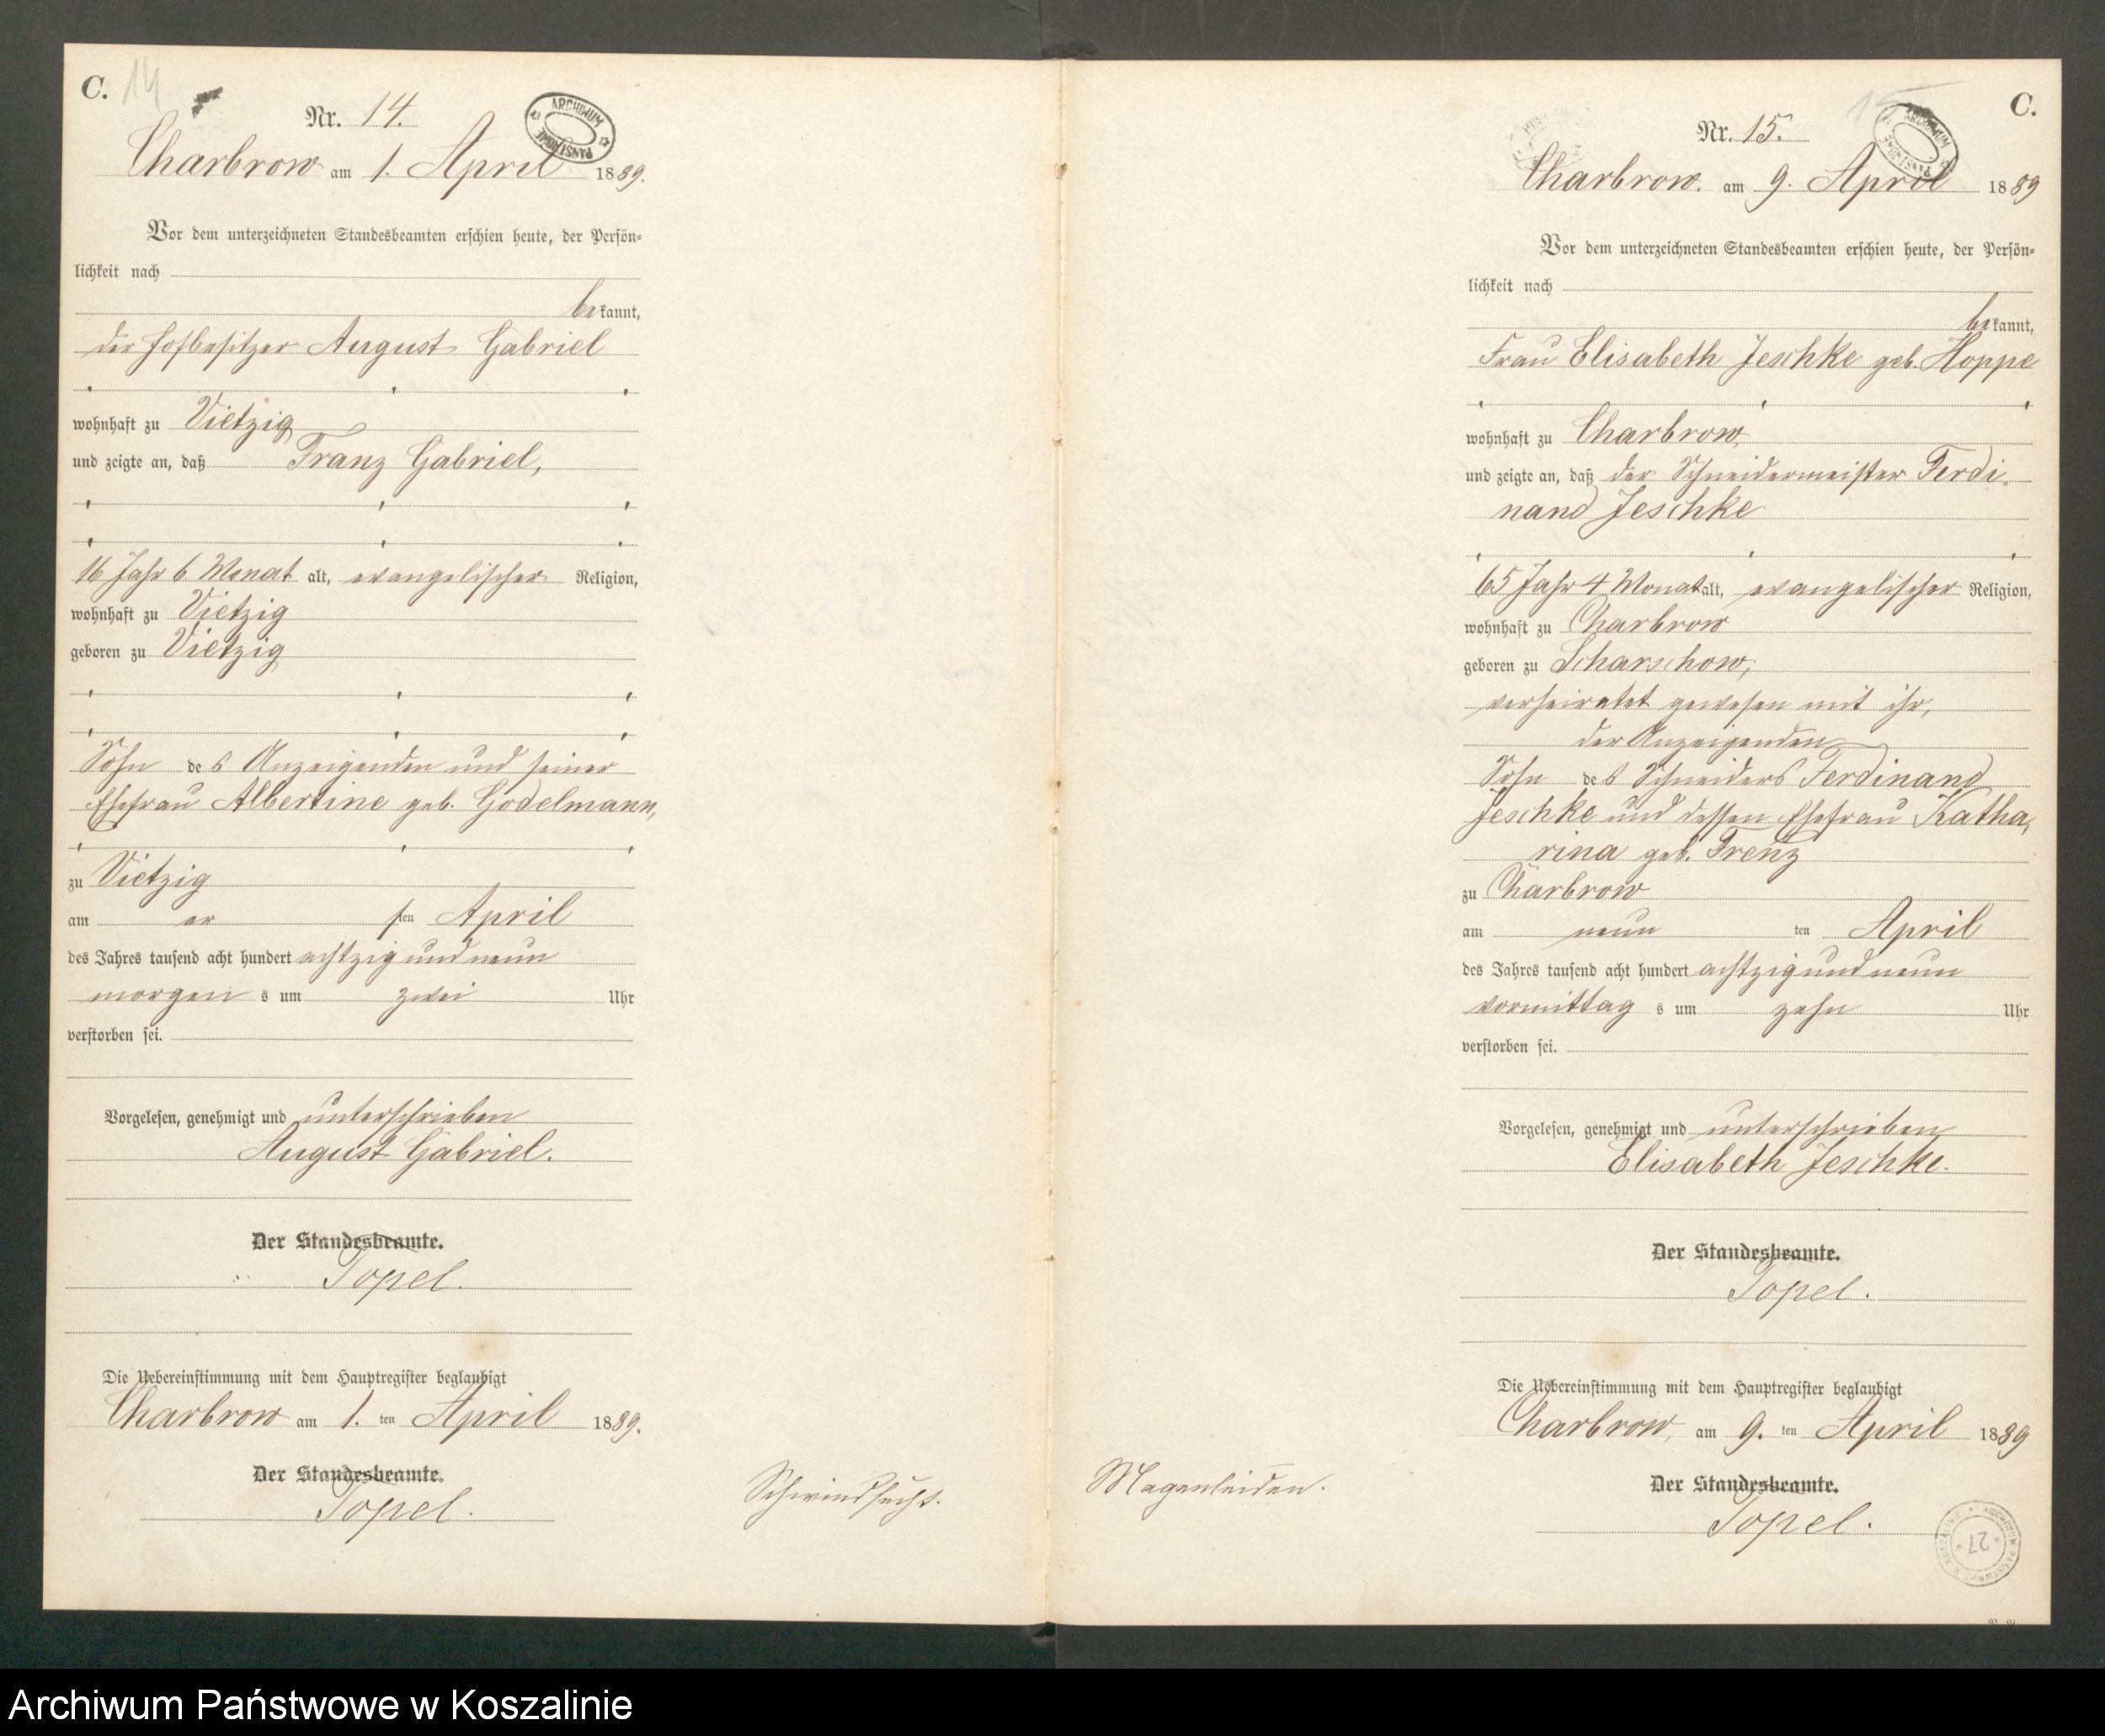 C. 14
Nr. 14.
ARCHIWUM PAŃSTWOWE
Charbrow am 1. April 1889.
Vor dem unterzeichneten Standesbeamten erschien heute, der Persön=
lichkeit nach
bekannt,
der Hofbesitzer August Gabriel
wohnhaft zu Vietzig
und zeigte an, daß Franz Gabriel,
16 Jahr 6 Monat alt, evangelischer Religion,
wohnhaft zu Vietzig
geboren zu Vietzig
Sohn des Anzeigenden und seiner
Ehefrau Albertine geb. Godelmann,
zu Vietzig
am ersten April
des Jahres tausend acht hundert achtzig und neun
morgens um zwei Uhr
verstorben sei.
Vorgelesen, genehmigt und unterschrieben
August Gabriel.
Der Standesbeamte.
Topel.
Die Uebereinstimmung mit dem Hauptregister beglaubigt
Charbrow am 1. ten April 1889.
Der Standesbeamte.
Topel.
Schwindsucht.
C.
15
Nr. 15.
ARCHIWUM PAŃSTWOWE
Charbrow. am 9. April 1889
Vor dem unterzeichneten Standesbeamten erschien heute, der Persön=
lichkeit nach
bekannt,
Frau Elisabeth Jeschke geb. Hoppe
wohnhaft zu Charbrow,
und zeigte an, daß der Schneidermeister Ferdi=
nand Jeschke
65 Jahr 4 Monat alt, evangelischer Religion,
wohnhaft zu Charbrow
geboren zu Scharschow,
verheiratet gewesen mit ihr,
der Anzeigenden
Sohn des Schneiders Ferdinand
Jeschke und dessen Ehefrau Katha,
rina geb. Trenz
zu Charbrow
am neunten April
des Jahres tausend acht hundert achtzig und neun
vormittags um zehn Uhr
verstorben sei.
Vorgelesen, genehmigt und unterschrieben
Elisabeth Jeschke.
Der Standesbeamte.
Topel.
Die Uebereinstimmung mit dem Hauptregister beglaubigt
Charbrow, am 9. ten April 1889
Der Standesbeamte.
Topel.
Magenleiden.
27
Archiwum Państwowe w Koszalinie